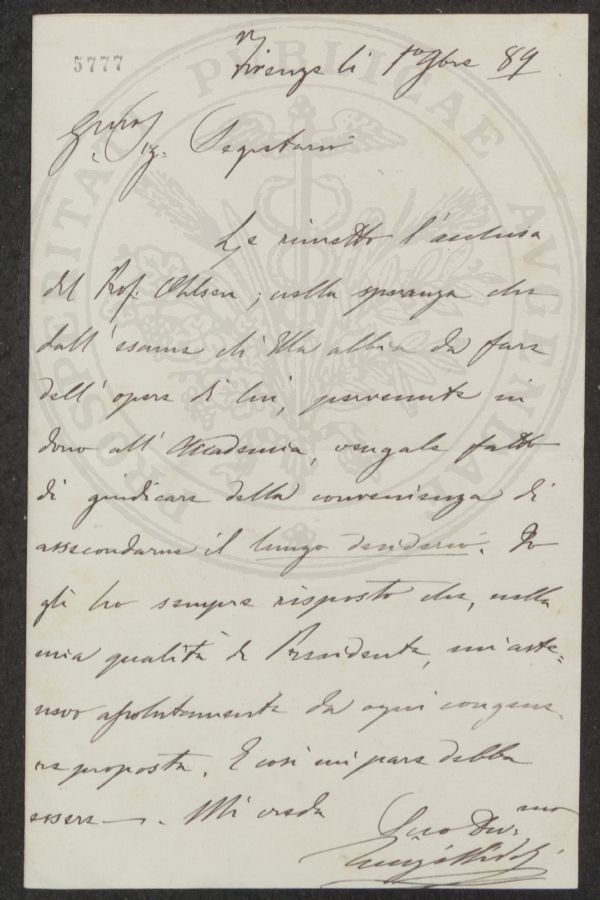 5777
Firenze li 1º 9bre 89
Sig. Segretario
Le rimetto l'acclusa
del Prof. Ohlsen; nella speranza che
dall'esame ch'Ella abbia da fare
dell'opere di lui, pervenute in
dono all'Accademia, vengale fatto
di giudicare della convenienza di
assecondarne il lungo desiderio. Io
gli ho sempre risposto che, nella
mia qualità di Presidente, mi aste=
nevo assolutamente da ogni congene-
re proposta. E così mi pare debba
essere —. Mi creda
Suo Dev.mo
PROSPERITATI PUBLICAE AUGENDAE